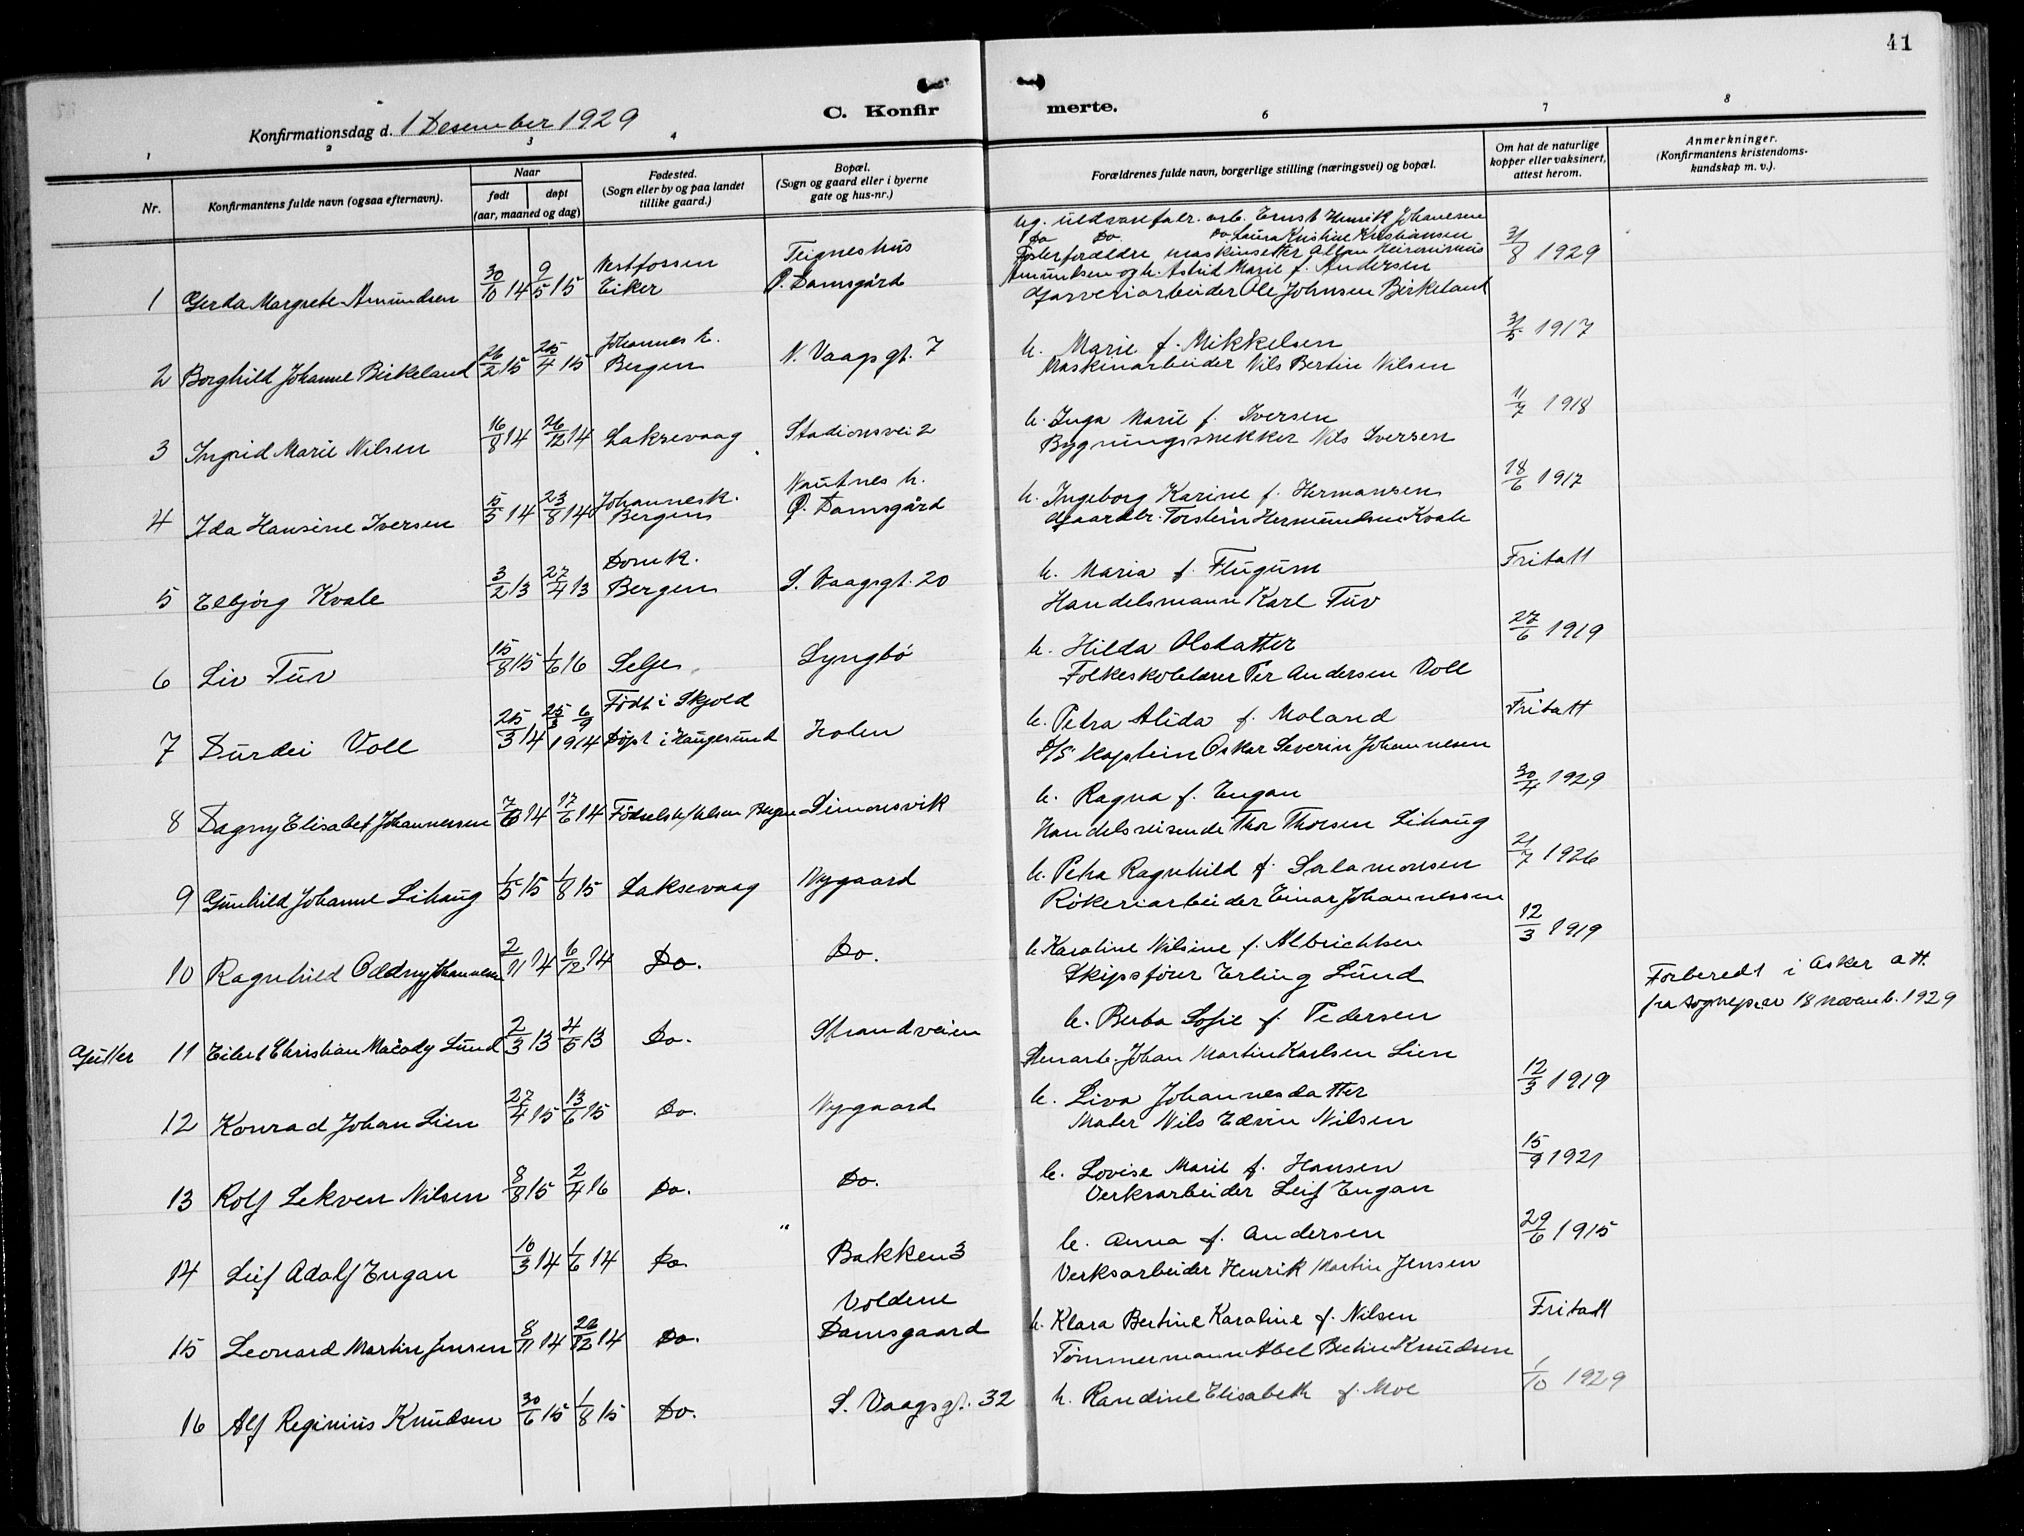 41
Konfirmationsdag d. 1 Desember 1929
C. Konfirmerte.
1 2 3 4 6 7 8
Nr.
Konfirmantens fulde navn (ogsaa efternavn).
Naar
født døpt
(aar, maaned og dag)
Fødested.
(Sogn eller by og paa landet
tillike gaard.)
Bopæl.
(Sogn og gaard eller i byerne
gate og hus-nr.)
Forældrenes fulde navn, borgerlige stilling (næringsvei) og bopæl.
Om hat de naturlige
kopper eller vaksinert,
attest herom.
Anmerkninger.
(Konfirmantens kristendoms-
kundskap m. v.).
ug. uldvarefabr. arb. Ernst Henrik Johansen
Do Do Do Laura Kristine Kristiansen
Fosterforældre maskinsetter Allan Heironimus
Amundsen og h. Astrid Marie f. Andersen
1 Gerda Margrete Amundsen 30/10 14 9/5 15 Vestfossen Eiker Teigneshus Ø. Damsgård 31/8 1929
Garveriarbeider Ole Johnsen Birkeland
2 Borghild Johanne Birkeland 26/2 15 25/4 15 Johannes k. Bergen N. Vaagsgt. 7 h. Marie f. Mikkelsen 31/5 1917
Maskinarbeider Nils Bertin Nilsen
3 Ingrid Marie Nilsen 16/8 14 26/12 14 Laksevaag Stadionsvei 2 h. Inga Marie f. Iversen 11/7 1918
Bygningssnekker Nils Iversen
4 Ida Hansine Iversen 5/5 14 23/8 14 Johannesk. Bergen Nautnes h. Ø. Damsgård h. Ingeborg Karine f. Hermansen 18/6 1917
Gaardbr. Torstein Hermundsen Kvale
5 Elbjörg Kvale 3/2 13 27/4 13 Domk. Bergen S. Vaagsgt. 20 h. Maria f. Flugum Fritatt
Handelsmann Karl Tuv
6 Liv Tuv 15/8 15 1/6 16 Selje Lyngbö h. Hilda Olsdatter 27/6 1919
Folkeskolelærer Per Andersen Voll
7 Durdei Voll 25/3 14 25/3 6/9 1914 Födt i Skjold Döpt i Haugesund Holen h. Petra Alida f. Moland Fritatt
D/S kaptein Oskar Severin Johannesen
8 Dagny Elisabet Johannessen 7/6 14 17/6 14 Födselsst. Bergen Simonsvik h. Ragna f. Engan 30/4 1929
Handelsreisende Thor Thorsen Lihaug
9 Gunhild Johanne Lihaug 1/5 15 1/8 15 Laksevaag Nygaard h. Petra Ragnhild f. Salamonsen 21/7 1926
Rökeriarbeider Einar Johannessen
10 Ragnhild Oddny Johannessen 2/11 14 6/12 14 Do. Do. h. Karoline Nilsine f. Albrichtsen 12/3 1919
Skipsförer Erling Lund
Gutter 11 Eilert Christian Macody Lund 2/3 13 4/5 13 Do. Strandveien h. Berta Sofie f. Pedersen Forberedt i Asker att.
fra sognepr. 18 novemb. 1929
Stenarb. Johan Martin Karlsen Lien
12 Konrad Johan Lien 27/4 15 13/6 15 Do. Nygaard h. Liva Johannesdatter 12/3 1919
Maler Nils Edvin Nilsen
13 Rolf Lekven Nilsen 8/8 15 2/4 16 Do. Do. h. Lovise Marie f. Hansen 15/9 1921
Verksarbeider Leif Engan
14 Leif Adolf Engan 10/3 14 1/6 14 Do Bakken 3 h. Anna f. Andersen 29/6 1915
Verksarbeider Henrik Martin Jensen
15 Leonard Martin Jensen 8/11 14 26/12 14 Do. Voldene Damsgaard h. Klara Bertine Karoline f. Nilsen Fritatt
Tömmermann Abel Bertin Knudsen
16 Alf Reginius Knudsen 30/6 15 1/8 15 Do. S. Vaagsgt. 32 h. Randine Elisabeth f. Moe 1/10 1929